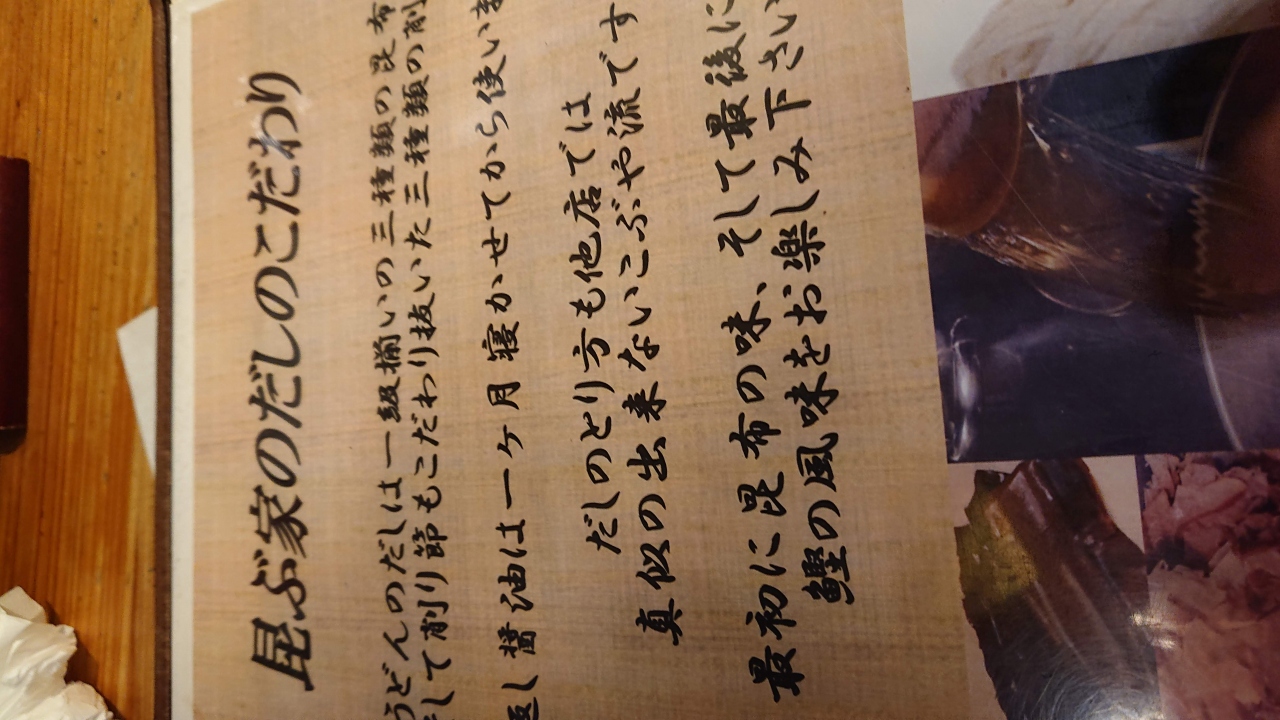 昆ぶ家のだしのこだわり
うどんのだしは一級揃いの三種類の昆布
して削り節もこだわり抜いた三種類の削
返し醤油は一ヶ月寝かせてから使いま
だしのとり方も他店では
真似の出来ないこぶや流です
最初に昆布の味、そして最後に
鰹の風味をお楽しみ下さい